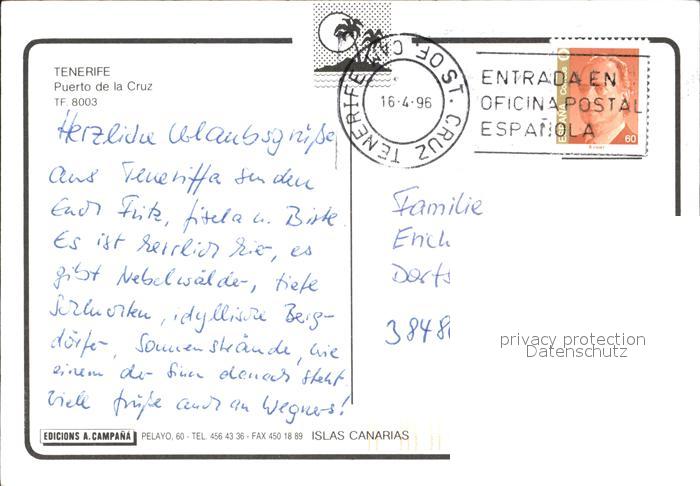 TENERIFE
Puerto de la Cruz
TF. 8003
Herzliche Urlaubsgrüße
aus Teneriffa senden
Euch Fritz, Gisela u. Birte.
Es ist herrlich hier, es
gibt Nebelwälder, tiefe
Schluchten, idyllische Berg-
dörfer, Sonnenstrände, wie
einem der Sinn danach steht.
Viele Grüße auch an Wegners!
EDICIONS A. CAMPAÑÁ PELAYO, 60 - TEL. 456 43 36 - FAX 450 18 89 ISLAS CANARIAS
TENERIFE
OF. ST. CRUZ TENERIFE
16-4-96
ENTRADA EN
OFICINA POSTAL
ESPAÑOLA
ESPAÑA Correos
60
Familie
Erich
Dorfs
3848
privacy protection
Datenschutz